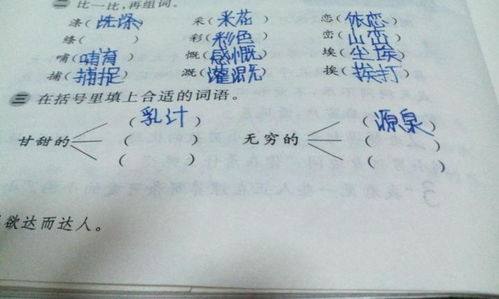 二 比一比,再组词。
涤(洗涤) 采(采花) 恋(依恋)
绦( ) 彩(彩色) 峦(山峦)
哺(哺育) 慨(感慨) 埃(尘埃)
捕(捕捉) 溉(灌溉) 挨(挨打)
三 在括号里填上合适的词语。
(乳汁) (源泉)
甘甜的 ( ) 无穷的 ( )
( ) ( )
欲达而达人。